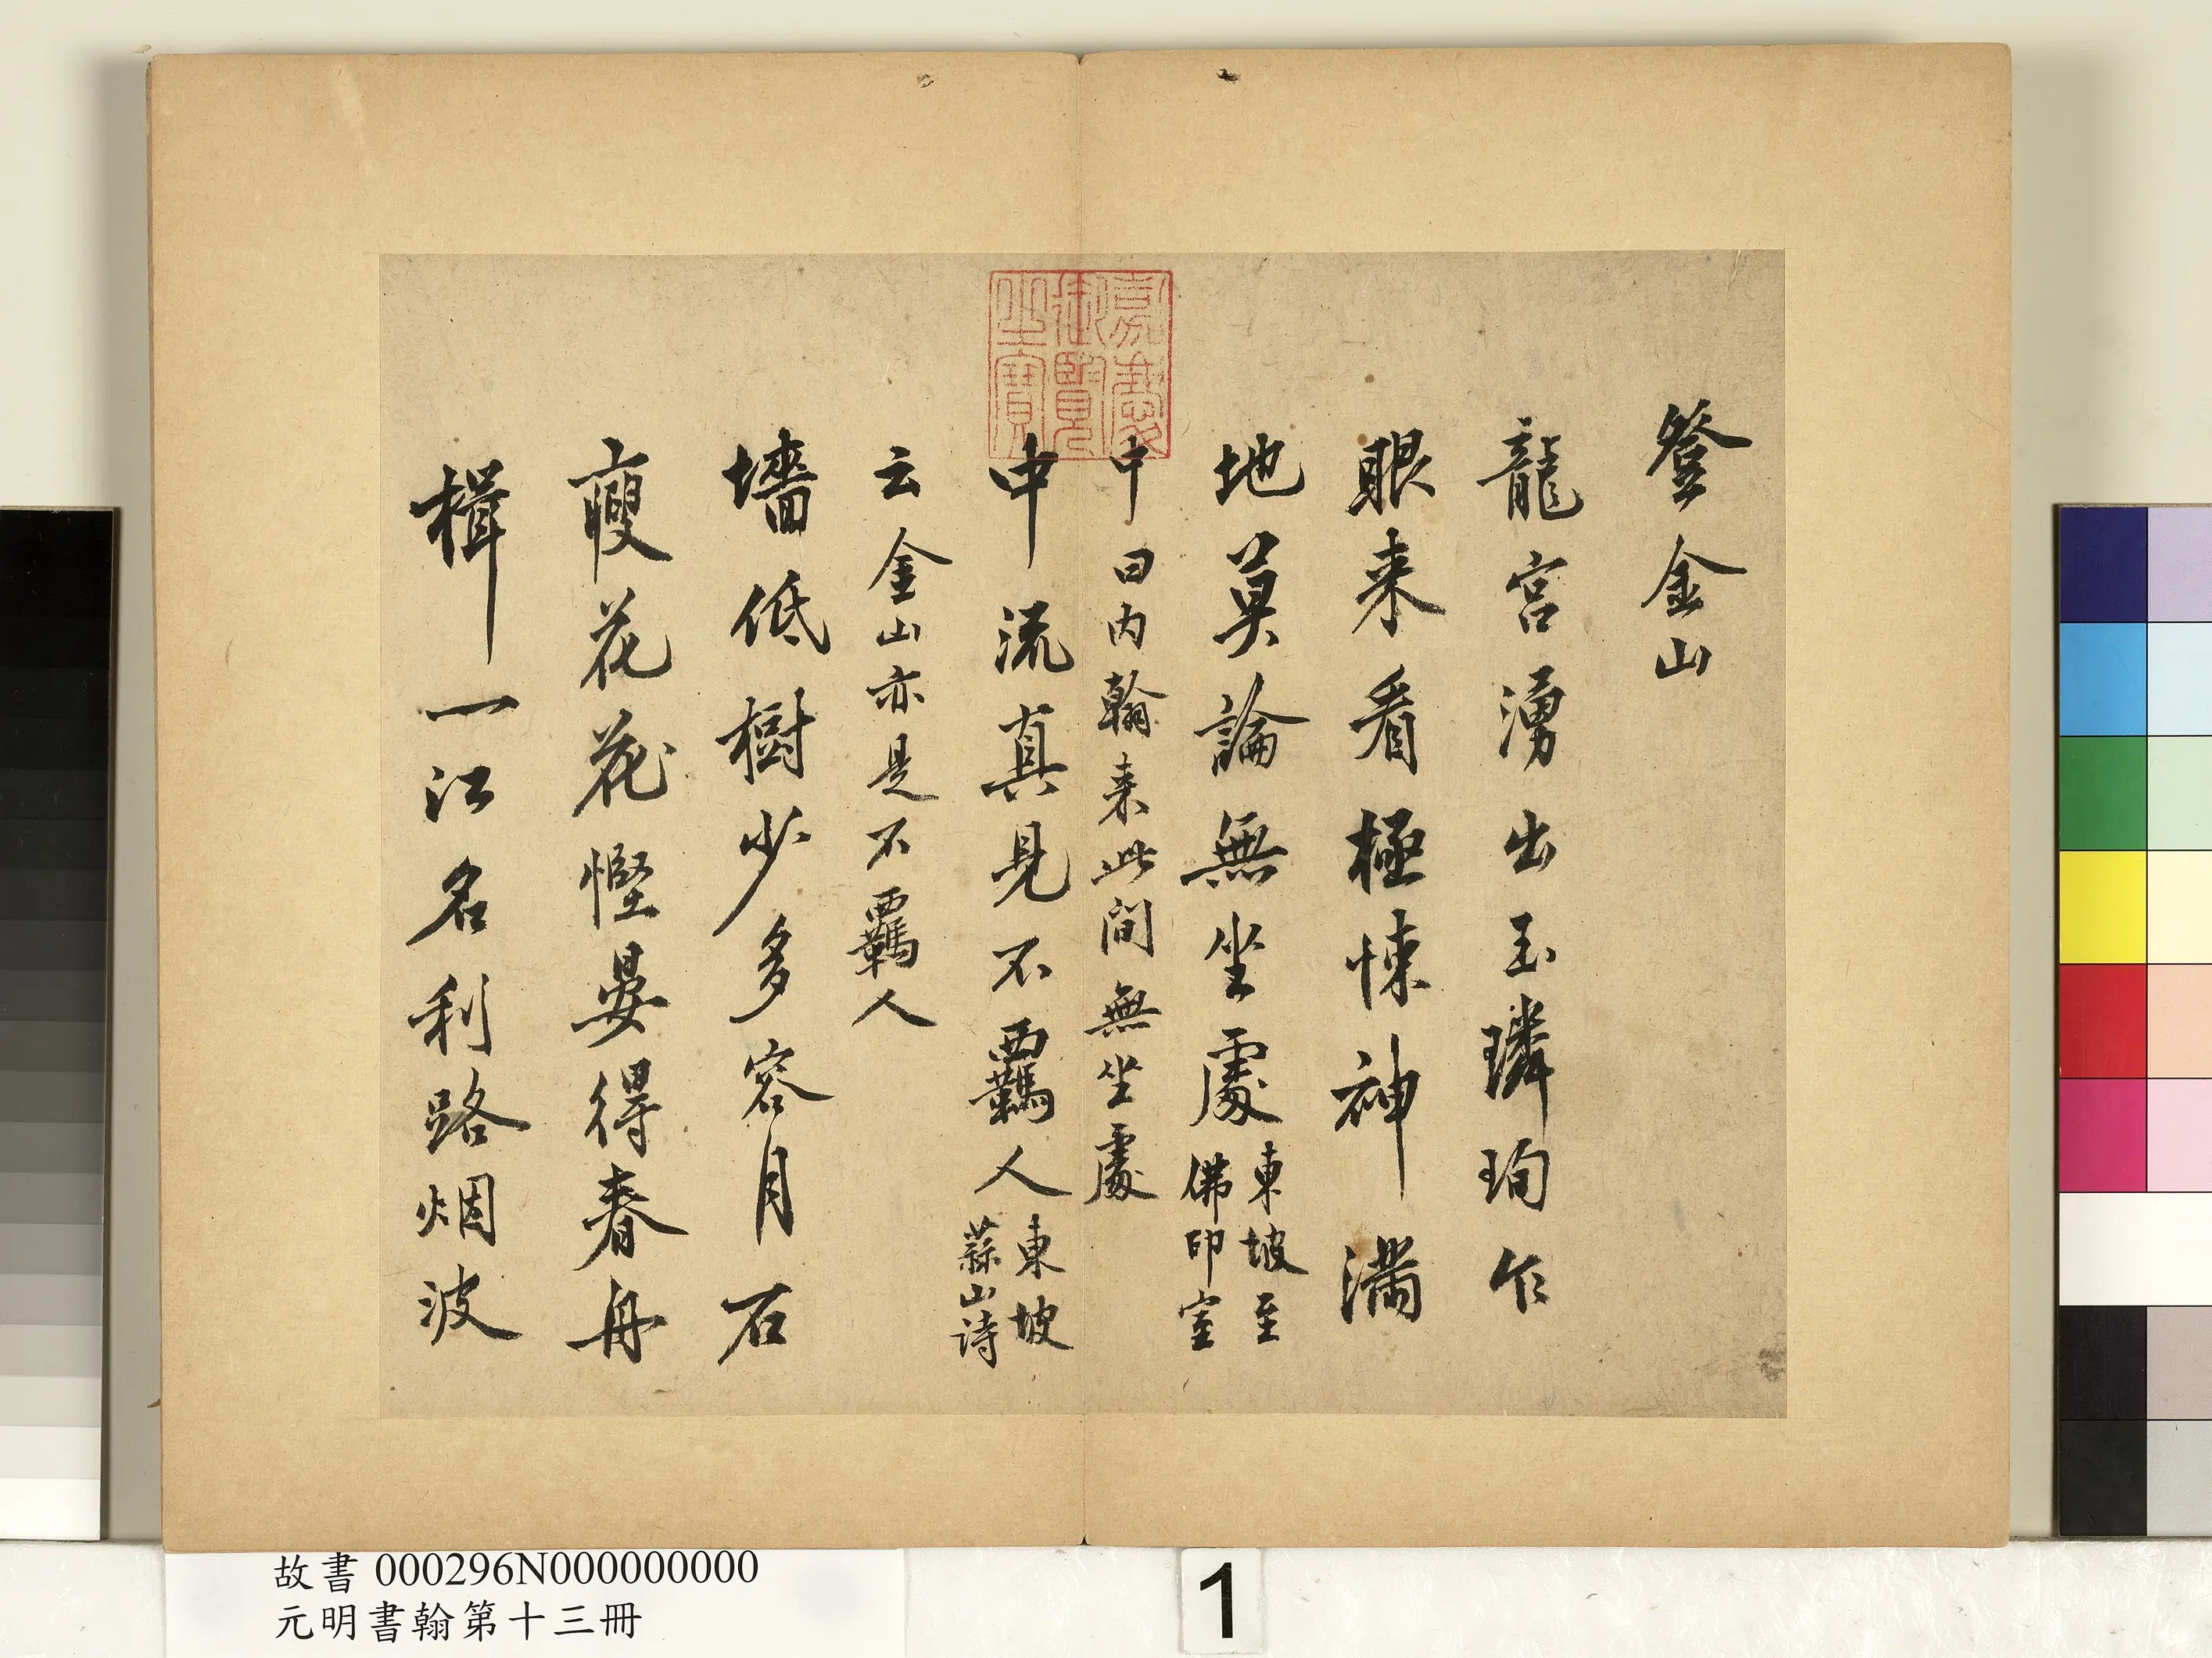 登金山
龍宮湧出玉璘珣乍
眼来看極悚神滿
地莫論無坐處東坡至佛印室
中曰内翰来此間無坐處
中流真見不羈人東坡蒜山詩
云金山亦是不羈人
墻低樹少多容月石
瘦花花慳晏得春舟
楫一江名利路烟波
嘉慶御覽之寶
故書 000296N000000000
元明書翰第十三冊
1